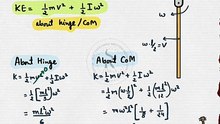 KE = ½mv² + ½Iω²
about hinge / CoM
ω
ω.l/2 = V
About Hinge
K = ½mv²⁰ + ½Iω²
= ½[ml²/3]ω²
= ml²ω²/6
About CoM
K = ½mv² + ½Iω²
= ½m(ω l/2)² + ½(ml²/12)ω²